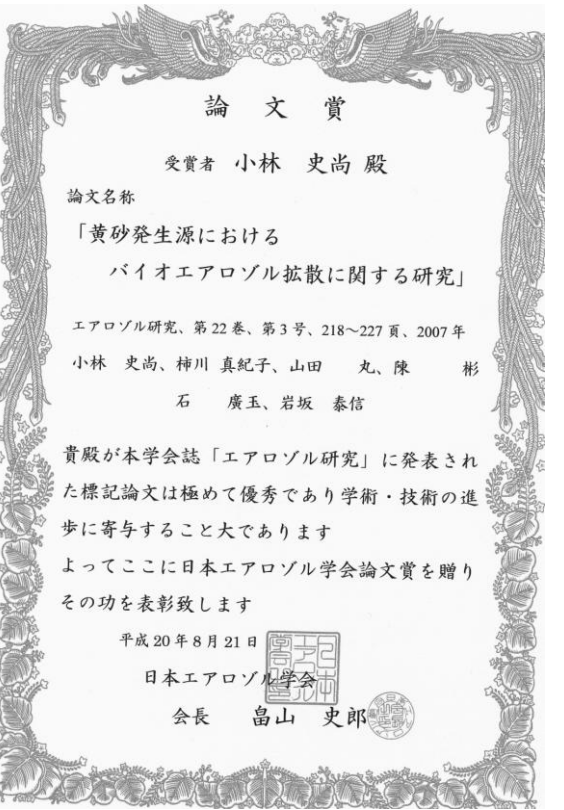 論文賞
受賞者 小林 史尚 殿
論文名称
「黄砂発生源における
バイオエアロゾル拡散に関する研究」
エアロゾル研究、第22巻、第3号、218～227頁、2007年
小林 史尚、柿川 真紀子、山田 丸、陳 彬
石 廣玉、岩坂 泰信
貴殿が本学会誌「エアロゾル研究」に発表され
た標記論文は極めて優秀であり学術・技術の進
歩に寄与すること大であります
よってここに日本エアロゾル学会論文賞を贈り
その功を表彰致します
平成20年8月21日
日本エアロゾル学会
会長 畠山 史郎